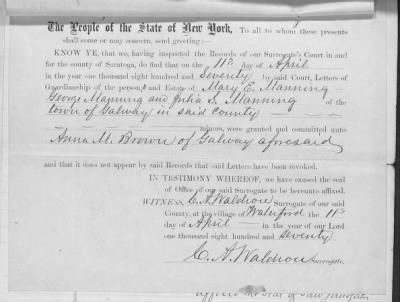 The People of the State of New York, To all to whom these presents
shall come or may concern, send greeting:—
KNOW YE, that we, having inspected the Records of our Surrogate's Court in and
for the county of Saratoga, do find that on the 11th day of April
in the year one thousand eight hundred and Seventy by said Court, Letters of
Guardianship of the person and Estate of Mary E. Manning
George Manning and Julia S. Manning of the
town of Galway in said County
minors, were granted and committed unto
Anna M. Brown of Galway aforesaid
and that it does not appear by said Records that said Letters have been revoked.
IN TESTIMONY WHEREOF, we have caused the seal
of Office of our said Surrogate to be hereunto affixed.
WITNESS, C. A. Waldron Surrogate of our said
County, at the village of Waterford the 11th
day of April in the year of our Lord
one thousand eight hundred and seventy
C. A. Waldron Surrogate.